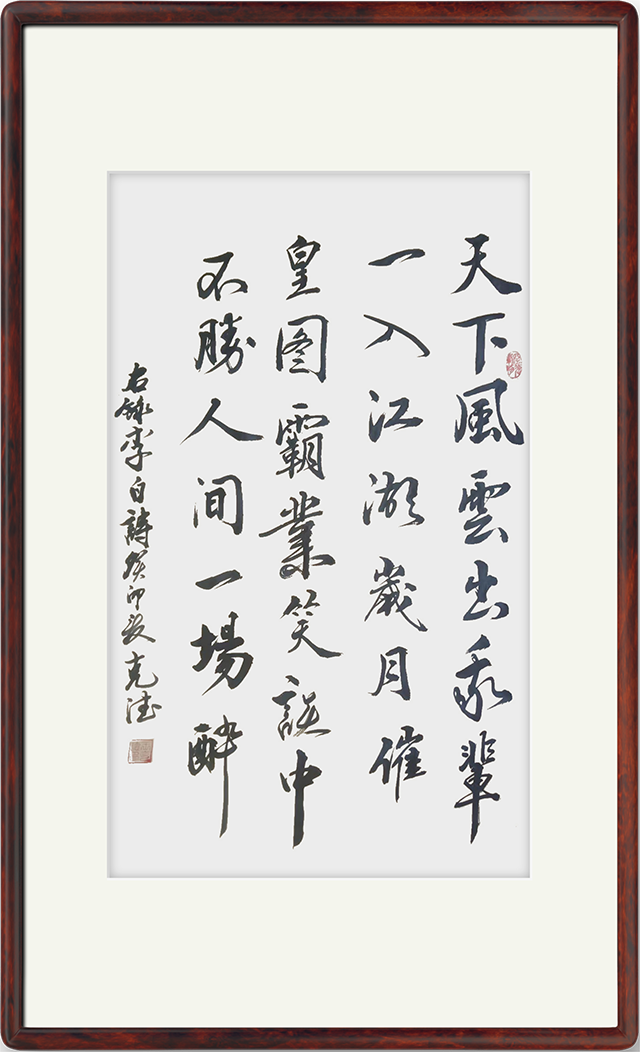 天下風雲出我輩
一入江湖歲月催
皇图霸業笑談中
不勝人间一場醉
右録李白詩癸卯夏克